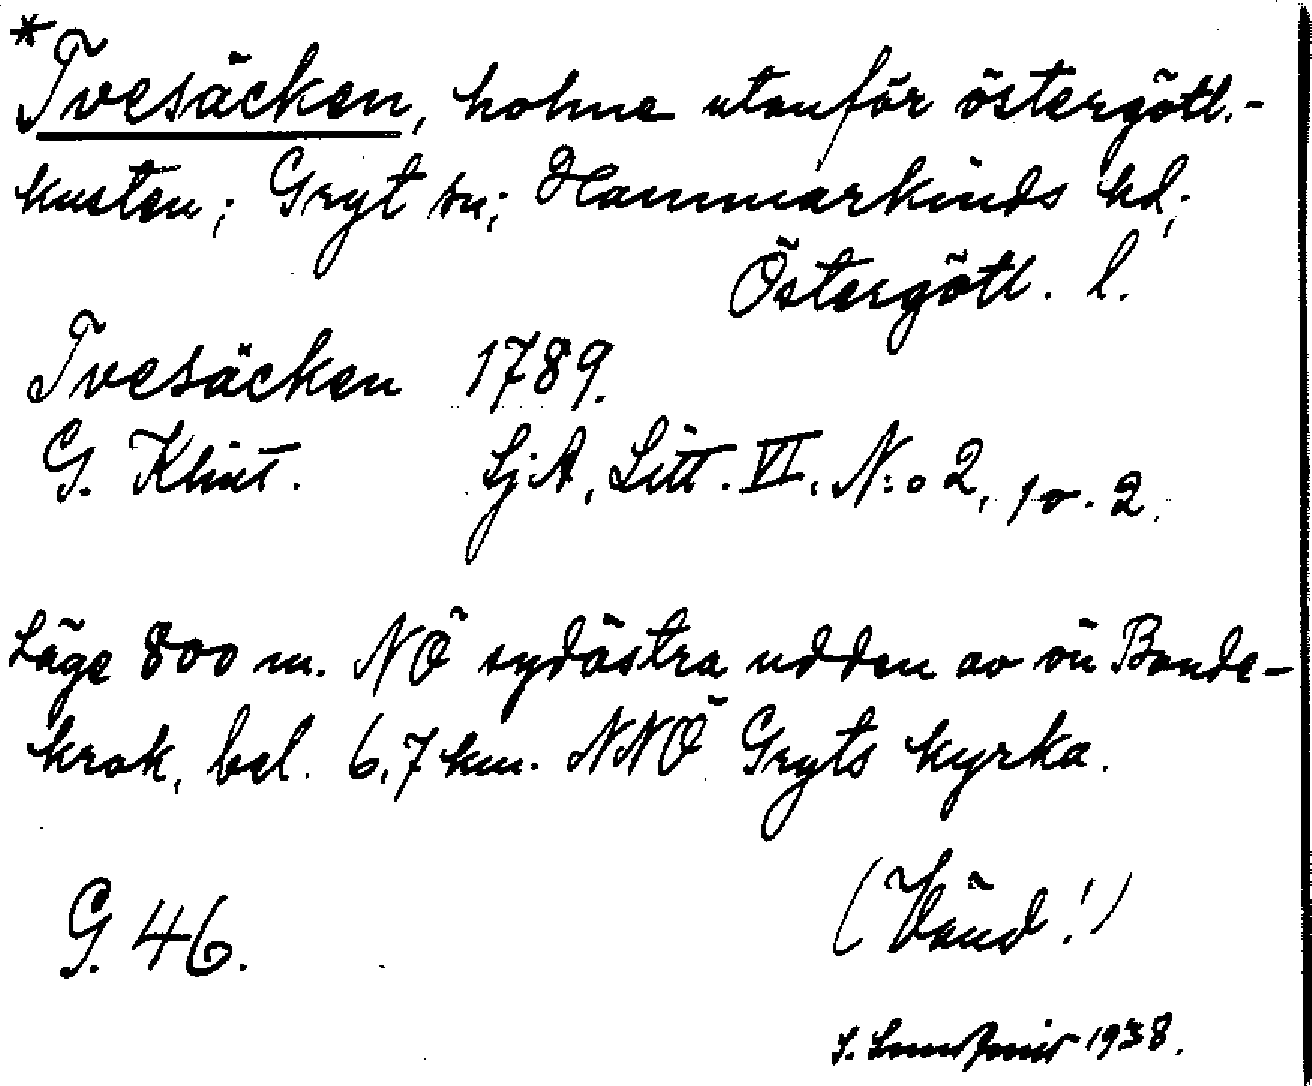 *Tvesäcken, holme utanför östergötl.-
kusten; Gryt sn; Hammarkinds hd;
Östergötl. l.
Tvesäcken 1789.
G. Klint. SjA, Litt. VI, N:o 2, 10. 2.
Läge 800 m. NÖ sydöstra udden av ön Bonde-
krok, bel. 6,7 km. NNÖ Gryts kyrka.
G. 46. (Vänd!)
1938.